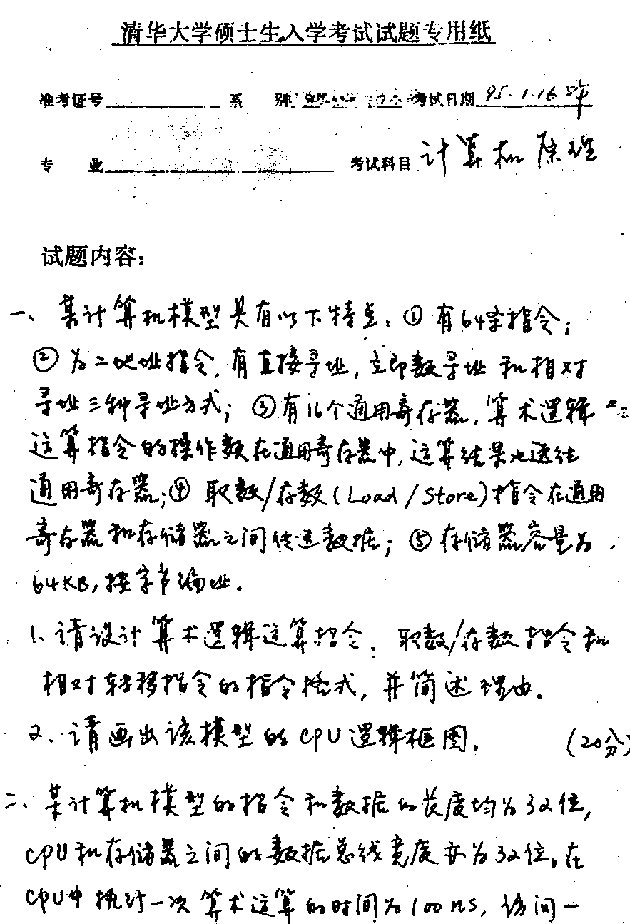 清华大学硕士生入学考试试题专用纸
准考证号 系 别 考试日期 95.1.16
专 业 考试科目 计算机原理
试题内容:
一、某计算机模型具有以下特点:① 有64字指令;
② 为二地址指令,有直接寻址,立即数寻址和相对
寻址三种寻址方式;③有16个通用寄存器,算术逻辑
运算指令的操作数在通用寄存器中,运算结果也送往
通用寄存器;④ 取数/存数(Load/Store)指令在通用
寄存器和存储器之间传送数据;⑤ 存储器容量为
64KB,按字节编址。
1、请设计算术逻辑运算指令、取数/存数指令和
相对转移指令的指令格式,并简述理由。
2、请画出该模型的CPU逻辑框图。 (20分)
二、某计算机模型的指令和数据的长度均为32位,
CPU和存储器之间的数据总线宽度亦为32位。在
CPU中执行一次算术运算的时间为100ns,访问一